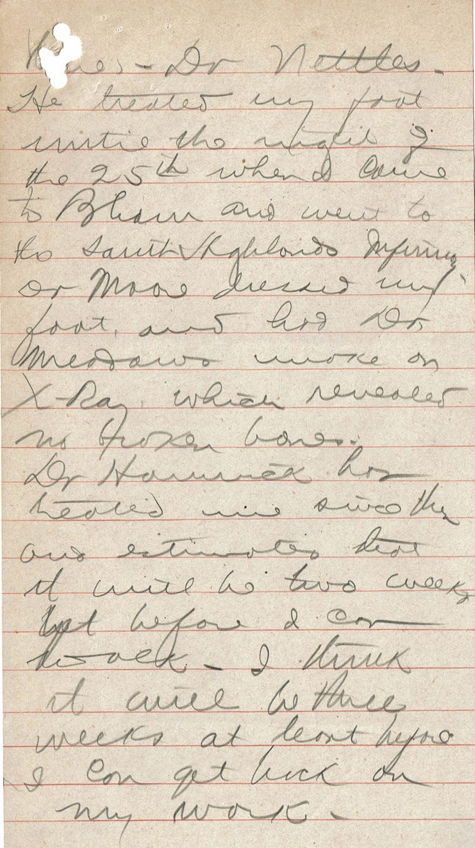 Dr Nettles.
He treated my foot
until the night of
the 25th when I came
to Bham and went to
the South Highlands Infirmary
Dr Moore dressed my
foot, and had Dr
Meadows make an
X-Ray which revealed
no broken bones.
Dr Hammack has
treated me since then
and estimates that
it will be two weeks
yet before I can
walk - I think
it will be three
weeks at least before
I can get back on
my work -